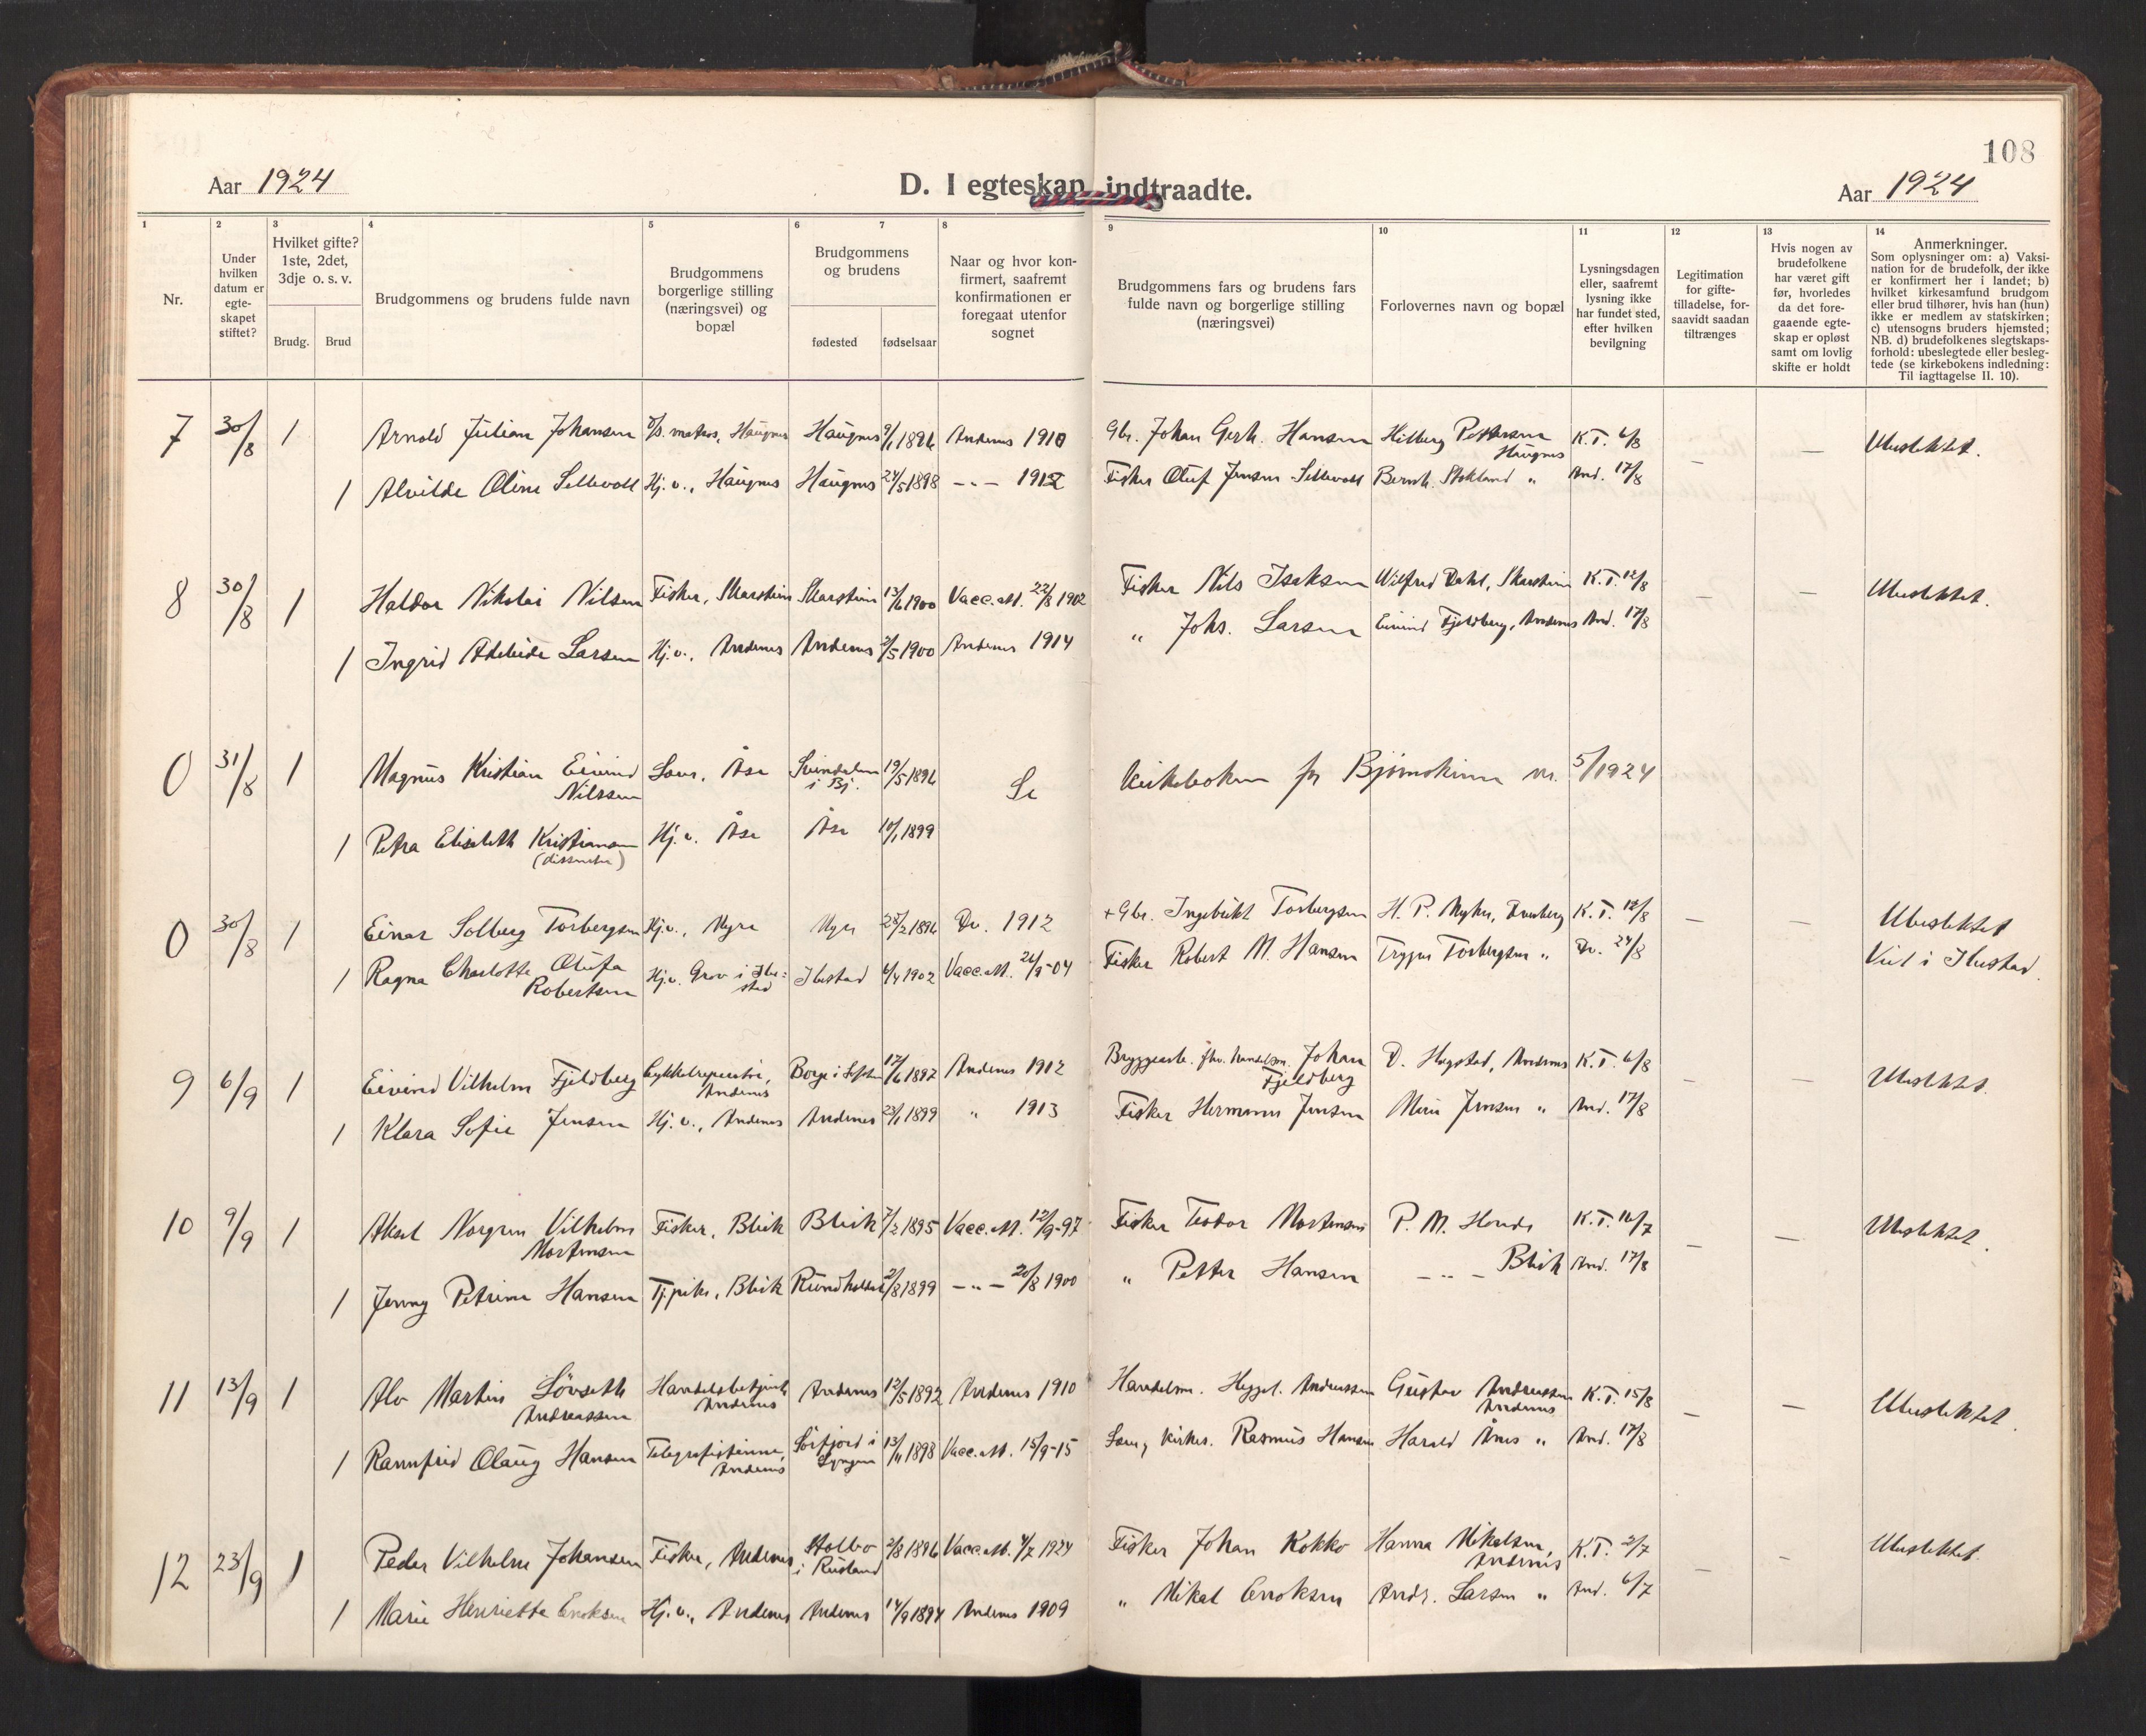 108
Aar 1924
D. I egteskap indtraadte.
Aar 1924
1 2 3 4 5 6 7 8 9 10 11 12 13 14
Nr.
Under
hvilken
datum er
egte-
skapet
stiftet?
Hvilket gifte?
1ste, 2det,
3dje o. s. v.
Brudg.
Brud
Brudgommens og brudens fulde navn
Brudgommens
borgerlige stilling
(næringsvei) og
bopæl
Brudgommens
og brudens
fødested
fødselsaar
Naar og hvor kon-
firmert, saafremt
konfirmationen er
foregaat utenfor
sognet
Brudgommens fars og brudens fars
fulde navn og borgerlige stilling
(næringsvei)
Forlovernes navn og bopæl
Lysningsdagen
eller, saafremt
lysning ikke
har fundet sted,
efter hvilken
bevilgning
Legitimation
for gifte-
tilladelse, for-
saavidt saadan
tiltrænges
Hvis nogen av
brudefolkene
har været gift
før, hvorledes
da det fore-
gaaende egte-
skap er opløst
samt om lovlig
skifte er holdt
Anmerkninger.
Som oplysninger om: a) Vaksi-
nation for de brudefolk, der ikke
er konfirmert her i landet; b)
hvilket kirkesamfund brudgom
eller brud tilhører, hvis han (hun)
ikke er medlem av statskirken;
c) utensogns bruders hjemsted;
NB. d) brudefolkenes slegtskaps-
forhold: ubeslegtede eller besleg-
tede (se kirkebokens indledning:
Til iagttagelse II. 10).
7 30/8 1 Arnold Julian Johansen matros, Haugnes Haugnes 9/1 1896 Andenes 1910 Gbr. Johan Gerh. Hansen Hilberg Pettersen K.T. 6/8 — — Ubeslektet.
Haugnes
1 Alvilde Oline Sellevoll Hj. v., Haugnes Haugnes 24/5 1898 -"- 1912 Fisker Oluf Jensen Sellevoll Bernh. Stokland " And. 17/8
8 30/8 1 Haldor Nikolai Nilsen Fisker, Skarstein Skarstein 13/6 1900 Vacc. att. 22/8 1902 Fisker Nils Isaksen Wilfred Dahl, Skarstein K.T. 12/8 — — Ubeslektet.
1 Ingrid Adeleide Larsen Hj. v., Andenes Andenes 2/5 1900 Andenes 1914 " Johs. Larsen Eivind Fjeldberg, Andenes And. 17/8
0 31/8 1 Magnus Kristian Eivind Åse 19/5 1896 Se Kirkeboken for Bjørnskinn nr. 5/1924
Nilssen i Bj.
1 Petra Elisabeth Kristiansen Hj. v. Åse Åse 10/1 1899
(dissenter)
0 30/8 1 Einar Solberg Torbergsen Hj. v., Myre Myre 28/2 1896 Dv. 1912 + Gbr. Ingebrikt Torbergsen H. P. Myhre, Dverberg K.T. 12/8 — — Ubeslektet
1 Ragna Charlotte Olufa Hj. v. Grov i Ibe- Ibestad 6/4 1902 Vacc. att. 26/9-04 Fisker Robert M. Hansen Trygve Torbergsen " Dv. 24/8 Viet i Ibestad.
Robertsen stad
9 6/9 1 Eivind Vilhelm Fjeldberg Cykkelreparatør, Borge i Lofoten 17/6 1897 Andenes 1912 Bryggearb. fhv. handelsm. Johan D. Hagstad, Andenes K.T. 6/8 — — Ubeslektet.
Andenes Fjeldberg
1 Klara Sofie Jensen Hj. v., Andenes Andenes 23/1 1899 " 1913 Fisker Hermann Jensen Jensen " And. 17/8
10 9/9 1 Aksel Norgren Vilhelm Fisker, Bleik Bleik 7/2 1895 Vacc. att. 12/9-97 Fisker Teodor Mortensen P. M. K.T. 16/7 — — Ubeslektet.
Mortensen
1 Jenny Petrine Hansen Tj.pike, Bleik 2/8 1899 -"- 20/8 1900 " Petter Hansen -"- Bleik And. 17/8
11 13/9 1 Alv Martin Lövseth Handelsbetjent Andenes 12/5 1892 Andenes 1910 Handelsm. Andreassen Gustav Andreassen K.T. 15/8 — — Ubeslektet.
Andreassen Andenes Andenes
1 Rannfrid Olaug Hansen Telegrafistinne, Sörfjord i 13/11 1898 Vacc. att. 15/9-15 Rasmus Hansen Harald Ånes " And. 17/8
Andenes Lyngen
12 23/9 1 Peder Vilhelm Johansen Fisker, Andenes Stolbo 2/3 1896 Vacc. att. 4/7 1924 Fisker Johan Kokko Hanna Mikalsen, K.T. 2/7 — — Ubeslektet.
i Rusland Andenes
1 Marie Henriette Enoksen Hj. v., Andenes Andenes 14/9 1894 Andenes 1909 " Mikal Enoksen Andr. Larsen " And. 6/7